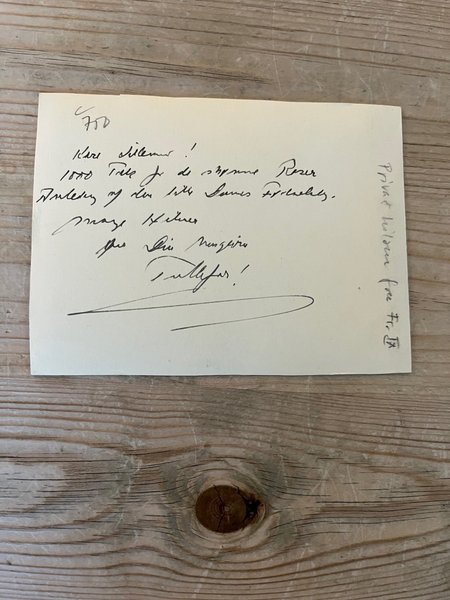 Kære !
1000 Tak for de skønne Roser
Anledning af den lille Dames Fødselsdag.
Mange Hilsner
fra Din
Privat hilsen fra Fr. IX